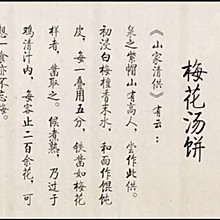 梅花汤饼
《山家清供》有云：
泉之紫帽山有高人，尝作此供。
初浸白梅檀香末水，和面作馄饨
皮，每一叠用五分，铁凿如梅花
样者，凿取之。候煮熟，乃过于
鸡清汁内，每客止二百余花，可
想一食亦不忘梅。